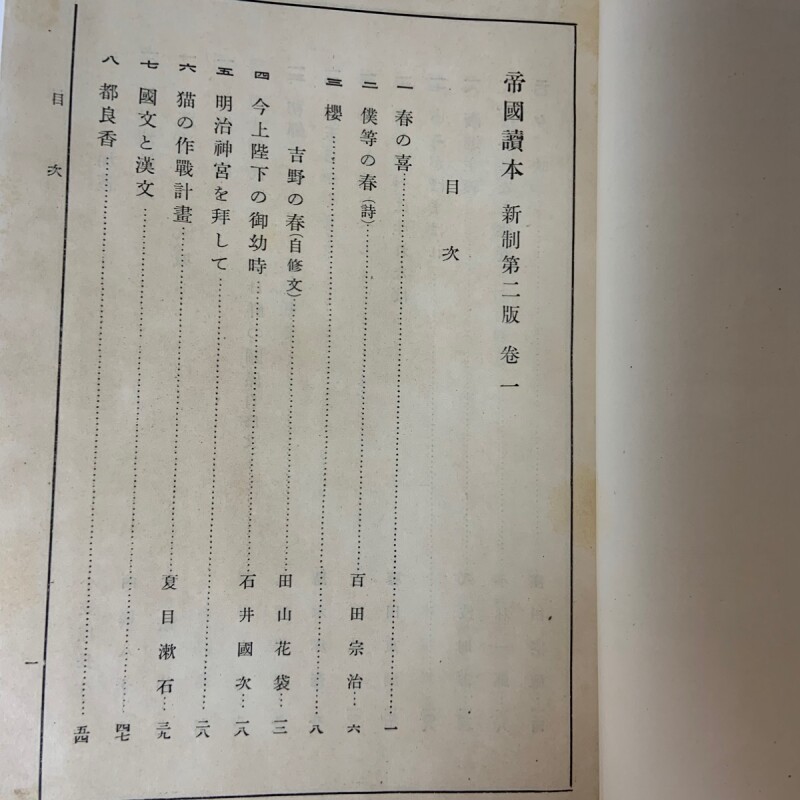 帝國讀本 新制第二版 卷一
目次
一 春の喜 一
二 僕等の春(詩) 百田宗治 六
三 櫻 八
吉野の春(自修文) 田山花袋 一二
四 今上陛下の御幼時 石井國次 一八
五 明治神宮を拜して 二八
六 猫の作戰計畫 夏目漱石 三九
七 國文と漢文 四七
八 都良香 五四
目次
一